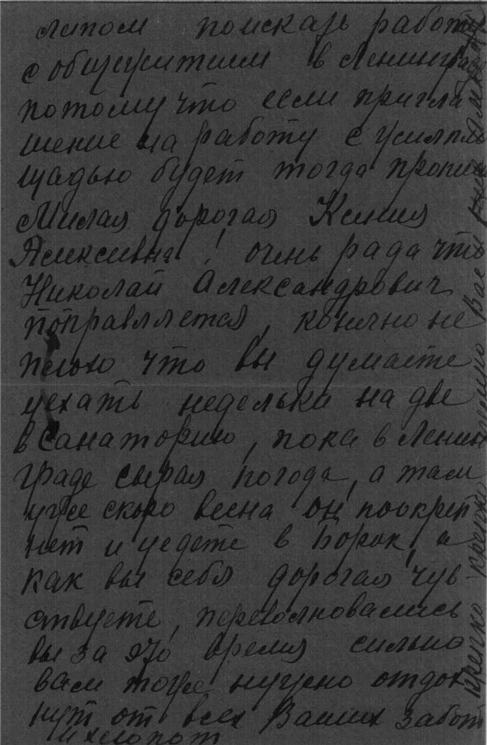 летом поискать работу
с общежитием в Ленингра
потому что если пригла
шение на работу с
щадью будет тогда пропи
Милая дорогая Ксения
Алексевна! очень рада что
Николай Александрович
поправляется, конечно не
плохо что вы думаете
уехать неделька на две
в санаторию, пока в Ленин
граде сырая погода, а там
уже скоро весна он поокреп
нет и уедете в Борок, а
как вы себя дорогая чув
ствуете, переволновались
вы за это время сильно
вам тоже нужно отдох
нут от всех Ваших забот
и хлопот
крепко крепко Вас